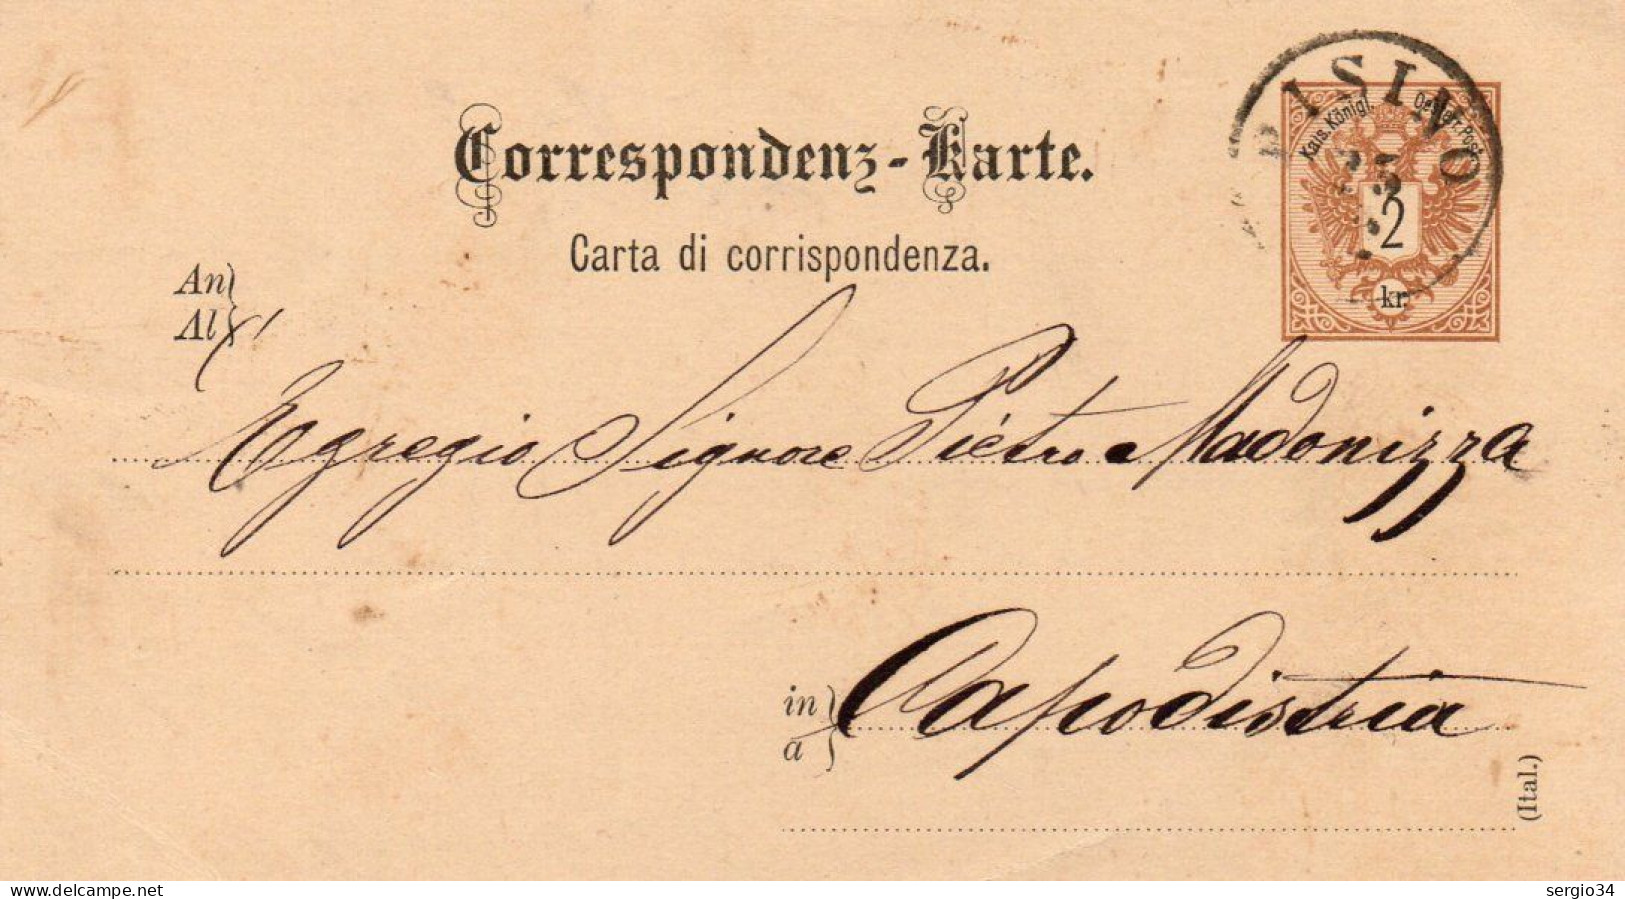 PISINO
Kais. Königl. Oesterr. Post
2
kr.
Correspondenz-Karte.
Carta di corrispondenza.
An
Al
Egregio Signore Pietro Madonizza
in
a
Capodistria
(Ital.)
www.delcampe.net
sergio34